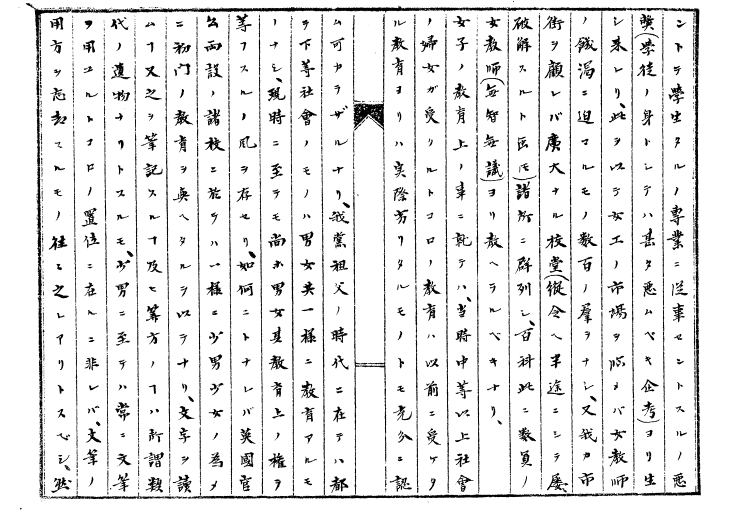 ントテ學生タルノ專業ニ從事セントスルノ惡
獎(學徒ノ身トシテハ甚タ惡ムベキ企考)ヨリ生
シ來レリ、此ヲ以テ女工ノ市場ヲ臨メバ女教師
ノ餓渴ニ迫マルモノ数百ノ羣ヲナシ、又我カ市
街ヲ顧レバ廣大ナル校堂(縱令ヘ半途ニシテ屡
破解スルト雖モ)諸所ニ群列シ、百科此ニ数員ノ
女教師(無智無識)ヨリ教ヘラルベキナリ、
女子ノ教育上ノ事ニ就テハ、當時中等以上社會
ノ婦女ガ受クルトコロノ教育ハ以前ニ受ケタ
ル教育ヨリハ実際劣リタルモノトモ充分ニ認
ム可カラザルナリ、我黨祖父ノ時代ニ在テハ都
テ下等社會ノモノハ男女共一様ニ教育アルモ
ノナシ、現時ニ至テモ尚ホ男女其教育上ノ權ヲ
等フスルノ風ヲ存セリ、如何ニトナレバ英國官
公両設ノ諸校ニ於テハ一様ニ少男少女ノ為メ
ニ初門ノ教育ヲ與ヘタルヲ以テナリ、文字ヲ讀
ムヿ又之ヲ筆記スルヿ及ヒ筭方ノヿハ所謂数
代ノ遺物ナリトスルモ、少男ニ至テハ常ニ文筆
ヲ用ユルトコロノ置位ニ在ルニ非レバ、文筆ノ
用方ヲ忘却スルモノ往々之レアリトスベシ、然